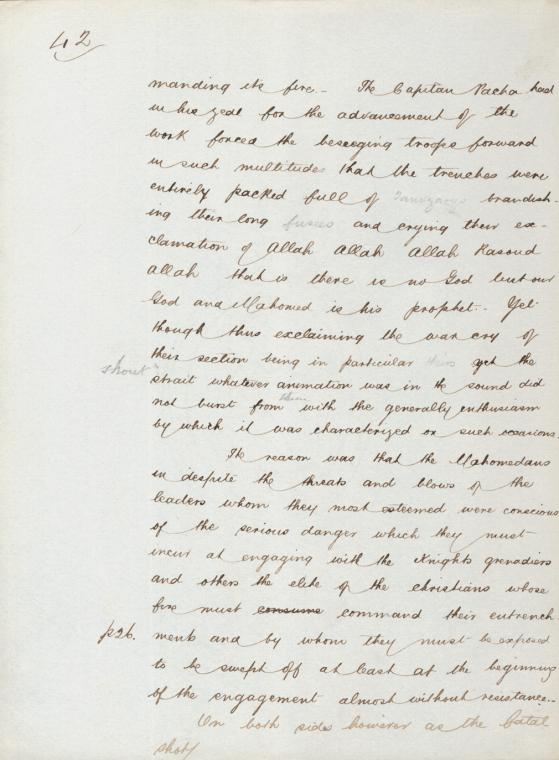 42
manding its fire. - The Capitan Pacha had
in his zeal for the advancement of the
work forced the beseeging troops forward
in such multitudes that the trenches were
entirely packed full of Janizarys brandish-
ing their long fusees and crying their ex-
clamation of Allah Allah Allah Rasoud
Allah that is there is no God but our
God and Mahomed is his prophet. Yet
though thus exclaiming the war cry of
their section being in particular theirs yet the
shout"
strait whatever animation was in the sound did
not burst from them with the generally enthusiasm
by which it was characterized on such occasions.
The reason was that the Mahomedans
in despite the threats and blows of the
leaders whom they most esteemed were conscious
of the serious danger which they must
incur at engaging with the Knights grenadiers
and others the elite of the christians whose
fire must consume command their entrench
p26. ments and by whom they must be exposed
to be swept off at least at the beginning
of the engagement almost without resistance. -
On both sides however as the fatal
shot